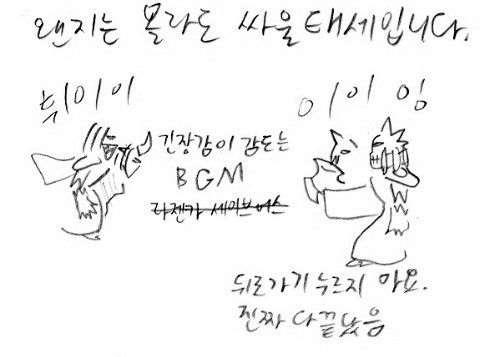 왠지는 몰라도 싸울태세입니다.
뷔이이
이이잉
긴장감이 감도는
BGM
라젠카 세이브어스
뒤로가기 누르지 마요.
진짜 다끝났음